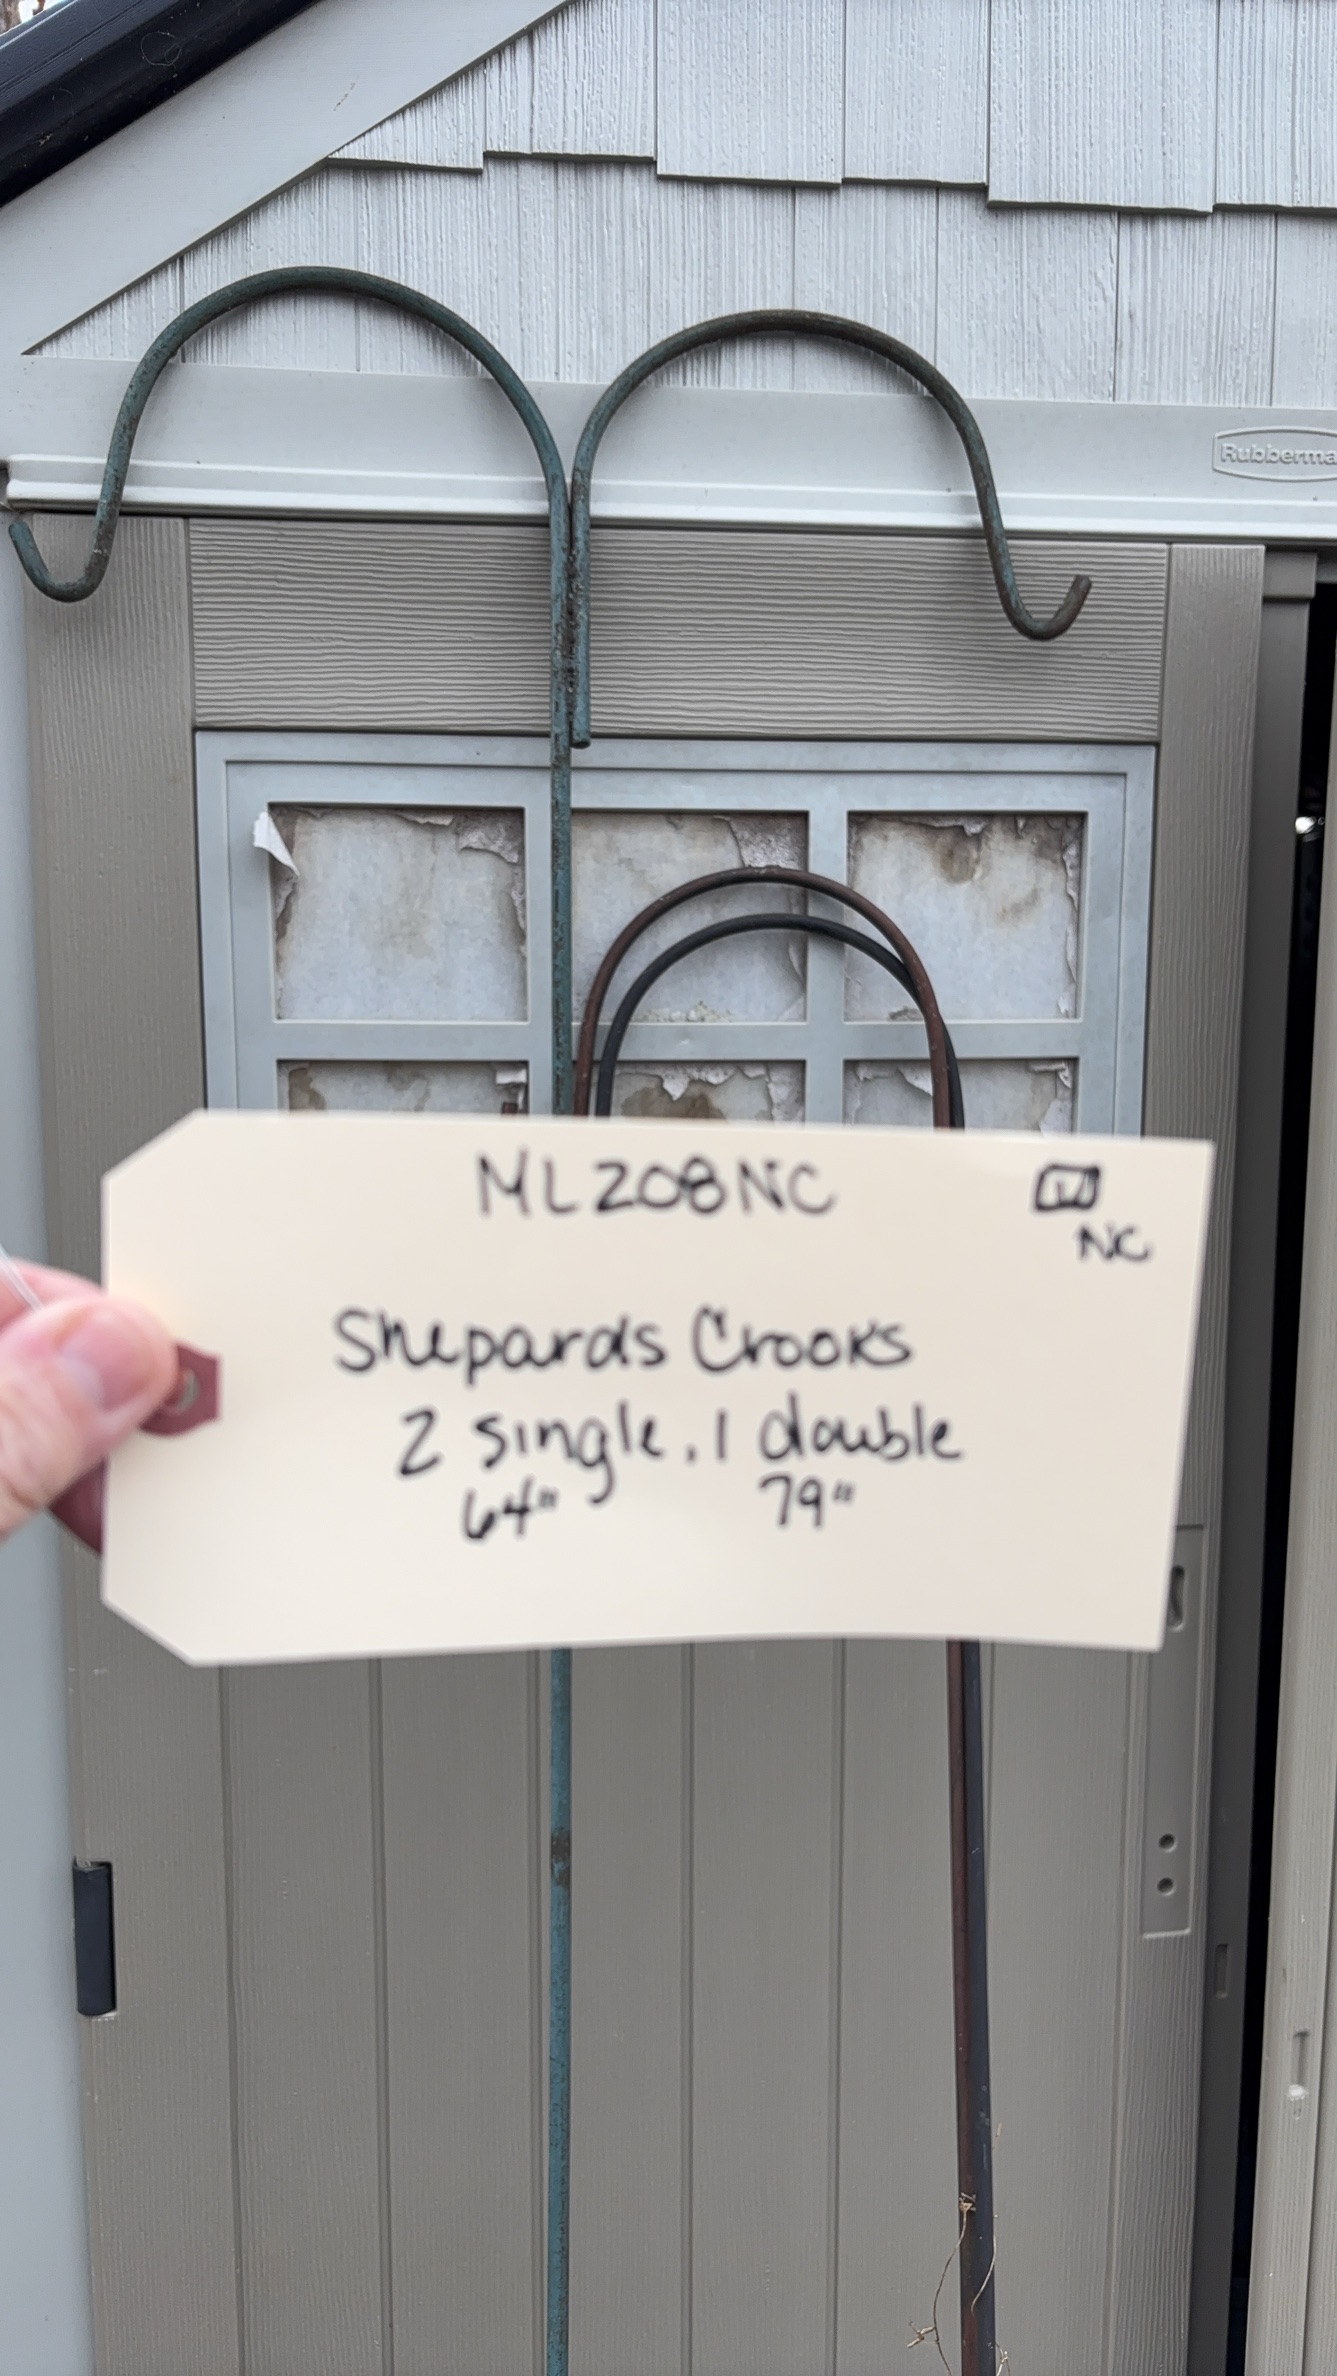 Rubberma
ML208NC
NC
Shepards Crooks
2 single, 1 double
64" 79"